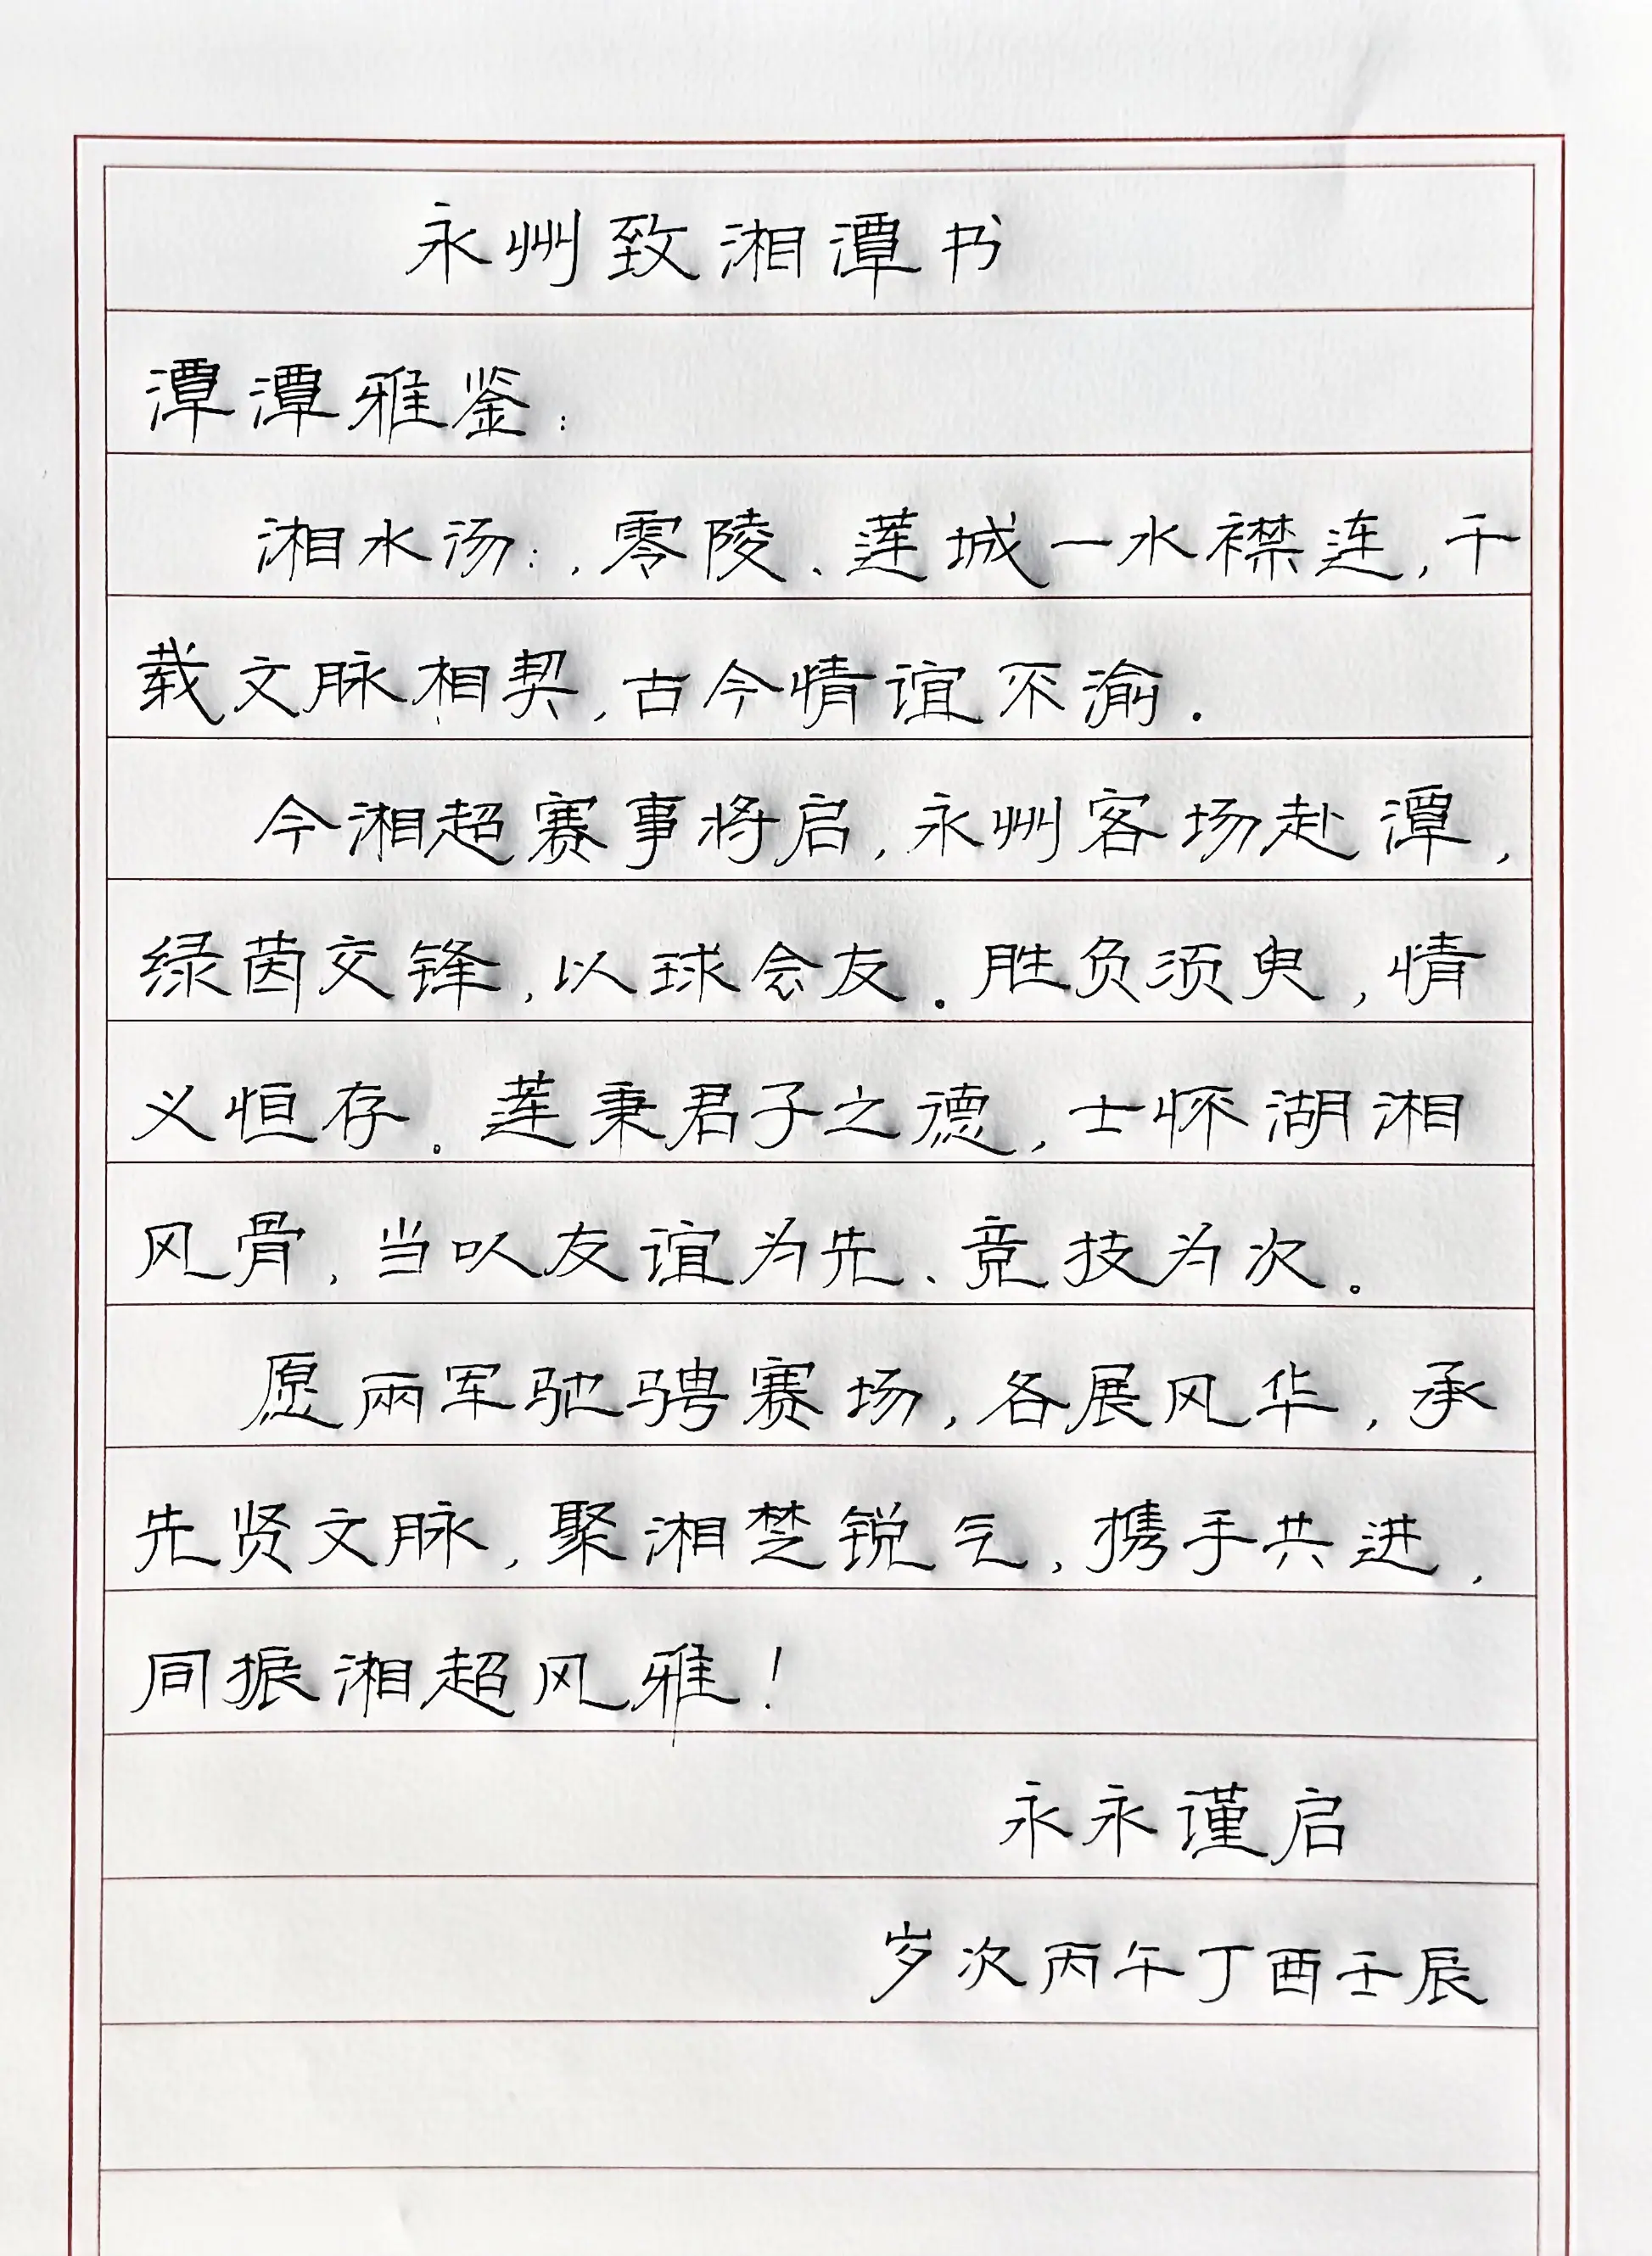 永州致湘潭书
潭潭雅鉴：
湘水汤:，零陵、莲城一水襟连，千
载文脉相契，古今情谊不渝.
今湘超赛事将启，永州客场赴潭，
绿茵交锋，以球会友。胜负须臾，情
义恒存。莲秉君子之德，士怀湖湘
风骨，当以友谊为先、竞技为次。
愿两军驰骋赛场，各展风华，承
先贤文脉，聚湘楚锐气，携手共进，
同振湘超风雅！
永永谨启
岁次丙午丁酉壬辰